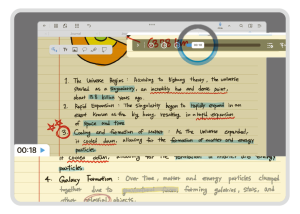 1. The Universe Begins : According to bigbang theory, the universe
started as a singularity, an incredibly hot and dense point,
about 13.8 billion years ago.
2. Rapid Expansion : The singularity began to rapidly expand in an
event known as the big bang, resulting in a rapid expansion
of space and time.
3 Cooling and formation of matter : As the universe expanded,
it cooled down, allowing for the formation of matter and energy
particles.
00:18
it cooled down, allowing for the formation of matter and energy
particles.
4. Galaxy Formation : Over time, matter and energy particles clumped
together due to forming galaxies, stars, and
other celestial objects.